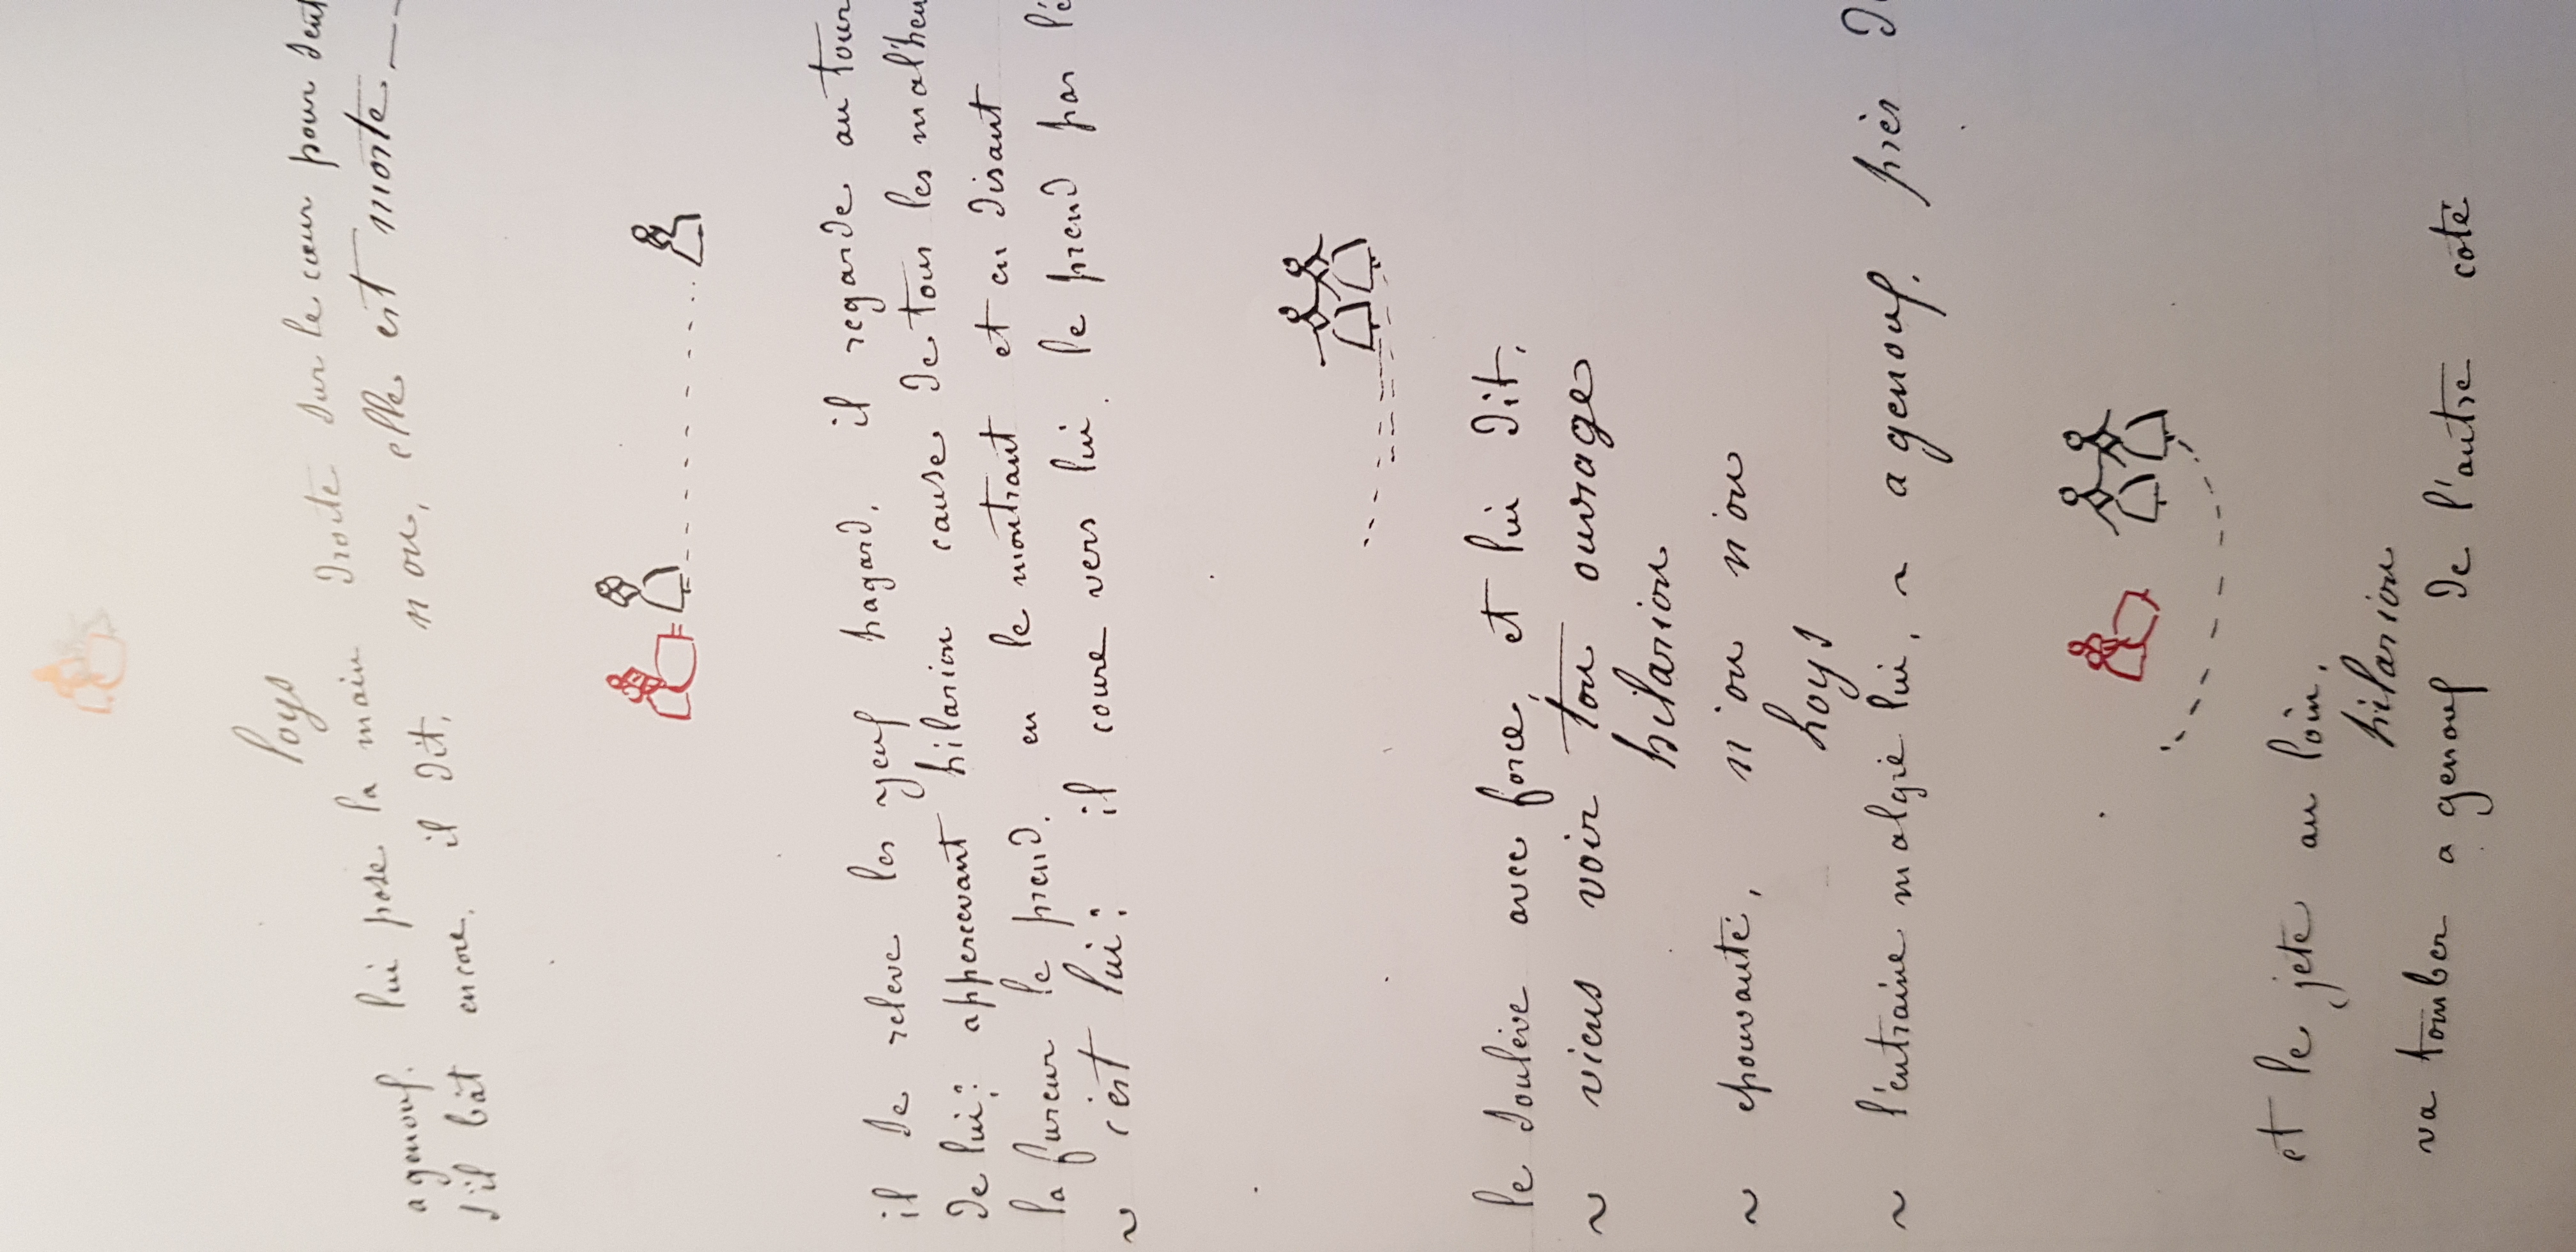 loys
a genouf. lui pose la main droite sur le cœur pour
s'il bât encore. il dit, non, elle est morte.
il se releve les yeuf hagard. il regarde au tour
de lui; appercevant hilarion cause de tous les malheu
la fureur le prend. en le montrant et en disant
~ c'est lui; il coure vers lui. le prend par l'é
le soulève avec force, et lui dit,
~ viens voir ton ouvrage
hilarion
~ epouvanté, non non
Loys
~ l'entraine malgré lui, ~ a genouf. près d
et le jete au loin,
hilarion
va tomber a genouf de l'autre coté